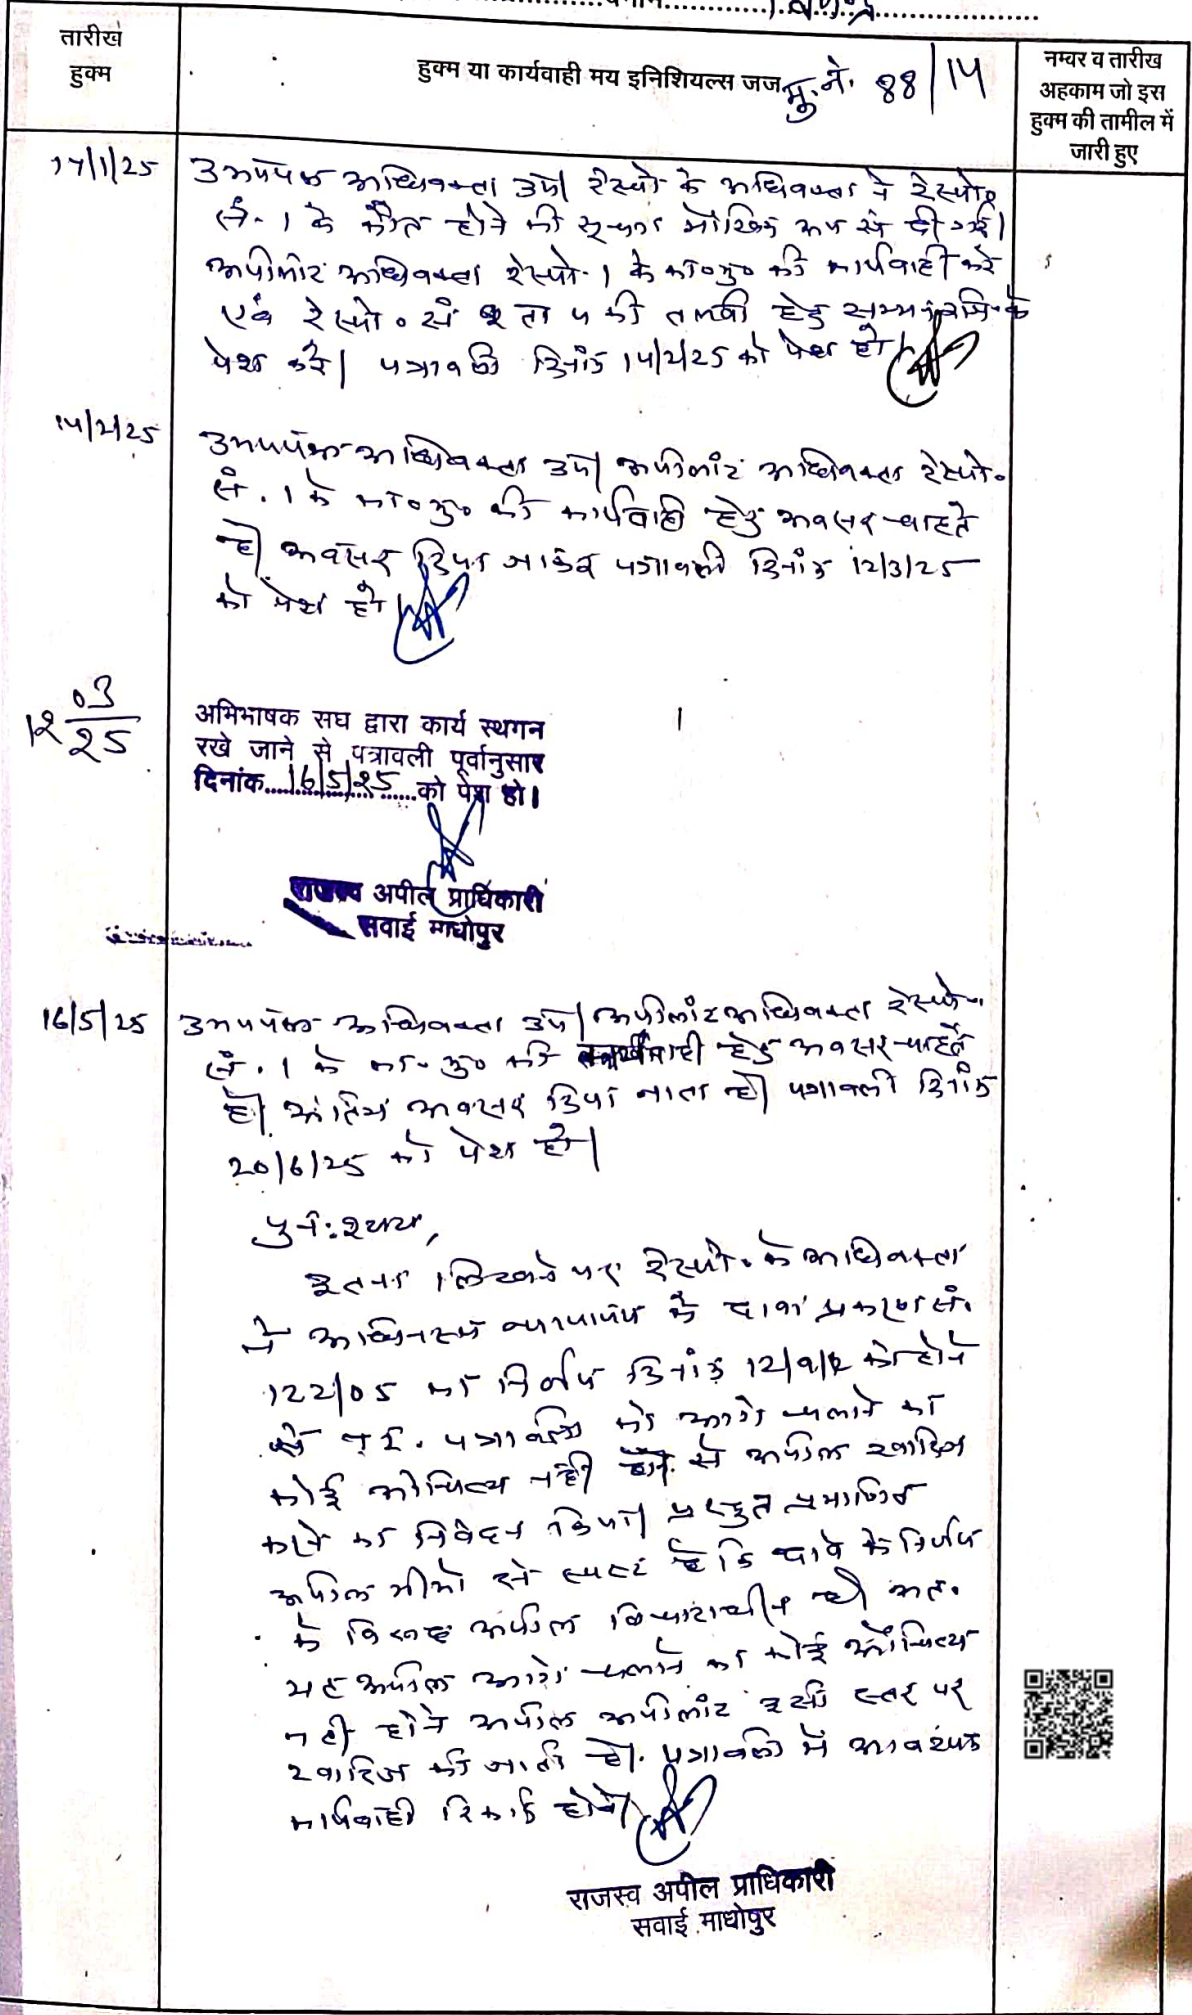 तारीख हुक्म
हुक्म या कार्यवाही मय इनिशियल्स जज मु.नं. 88/14
नम्बर व तारीख अहकाम जो इस हुक्म की तामील में जारी हुए
17/1/25 उभयपक्ष अधिवक्ता उप। रेस्पो के अधिवक्ता ने रेस्पो०
सं. 1 के फौत होने की सूचना मौखिक रूप से दी गई।
अपीलांट अधिवक्ता रेस्पो. 1 के का०मु० की कार्यवाही करे
एवं रेस्पो. सं 2 ता 4 की तलबी हेतु सम्मन
पेश करे। पत्रावली दिनांक 14/2/25 को पेश हो।
14/2/25 उभयपक्ष अधिवक्ता उप। अपीलांट अधिवक्ता रेस्पो.
सं. 1 के का०मु० की कार्यवाही हेतु अवसर चाहते
है। अवसर दिया जाकर पत्रावली दिनांक 12/3/25
को पेश हो।
12 03/25
अभिभाषक सघ द्वारा कार्य स्थगन
रखे जाने से पत्रावली पूर्वानुसार
दिनांक 16/5/25 को पेश हो।
राजस्व अपील प्राधिकारी
सवाई माधोपुर
16/5/25 उभयपक्ष अधिवक्ता उप। अपीलांट अधिवक्ता रेस्पो.
सं. 1 के का.मु० की कार्यवाही हेतु अवसर चाहते
है। अंतिम अवसर दिया जाता है। पत्रावली दिनांक
20/6/25 को पेश हो।
पुनःश्चय,
इतना लिखने पर रेस्पो. के अधिवक्ता
ने अधिनस्थ न्यायालय के दावा प्रकरण सं.
122/05 का निर्णय दिनांक 12/9/12 को होने
से पत्रावली को आगे चलाने का
कोई औचित्य नही होने से अपील खारिज
करने का निवेदन किया। प्रस्तुत प्रमाणित
अपील मीमो से स्पष्ट है कि दावे के निर्णय
के विरूद्ध अपील विचाराधीन है। अतः
यह अपील आगे चलाने का कोई औचित्य
नही होने अपील अपीलांट इसी स्तर पर
खारिज की जाती है। पत्रावली में आवश्यक
कार्यवाही रिकार्ड होवे।
राजस्व अपील प्राधिकारी
सवाई माधोपुर